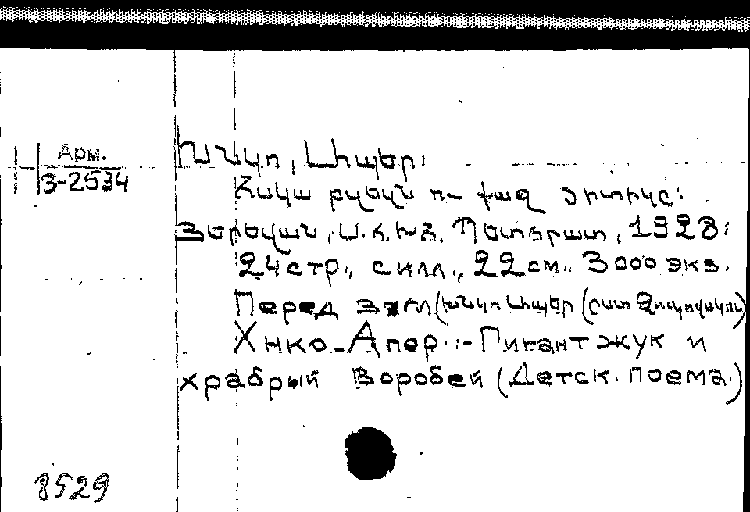 Арм.
3-2534
Խնկո, Ապեր։
Հսկա բզեզն ու քաջ ծիտիկը։
Յերեվան, Ս.Խ.Խ.Հ. Պետհրատ, 1928։
24 стр., с илл., 22 см., 3000 экз.
Перед загл. (Խնկո Ապեր (ըստ
Хнко-Апер.:- Гигант жук и
храбрый воробей (Детск. поема.)
8529